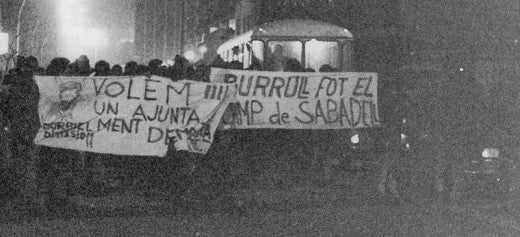 VOLEM
UN AJUNTA
MENT
BURRULL
DIMISSIÓ
BURRULL FOT EL
CAMP de SABADELL